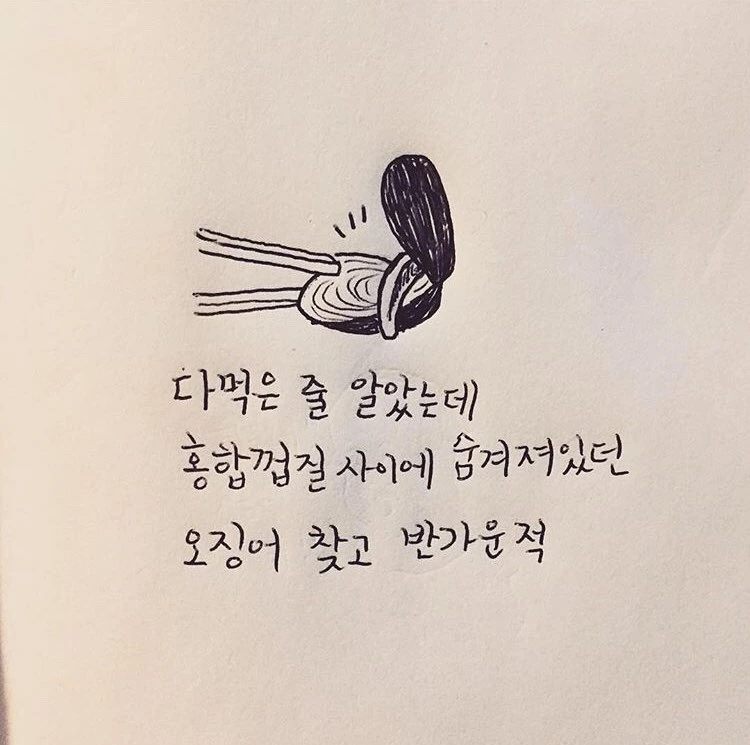 다먹은 줄 알았는데
홍합껍질 사이에 숨겨져있던
오징어 찾고 반가운적